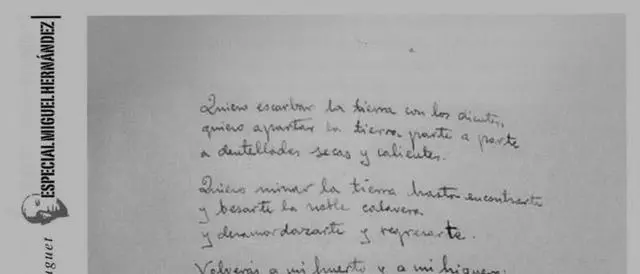 ESPECIAL MIGUEL HERNÁNDEZ
Quiero escarbar la tierra con los dientes,
quiero apartar la tierra parte a parte
a dentelladas secas y calientes.
Quiero minar la tierra hasta encontrarte
y besarte la noble calavera
y desamordazarte y regresarte.
Volverás a mi huerto y a mi higuera: